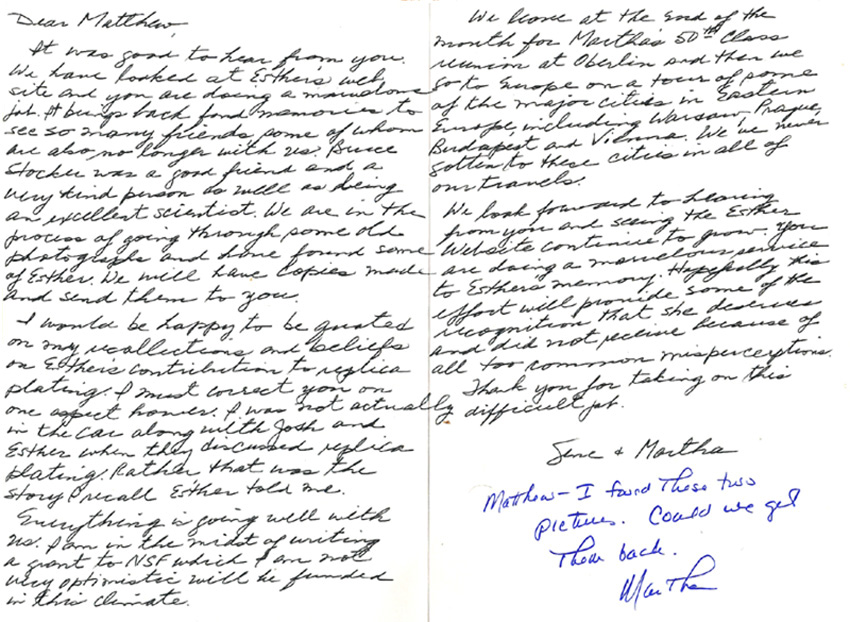 Dear Matthew,
It was good to hear from you.
We have looked at Esther's web
site and you are doing a marvelous
job. It brings back fond memories to
see so many friends some of whom
are also no longer with us. Bruce
Stocker was a good friend and a
very kind person as well as being
an excellent scientist. We are in the
process of going through some old
photographs and have found some
of Esther. We will have copies made
and send them to you.
I would be happy to be quoted
on my recollections and beliefs
on Esther's contribution to replica
plating. I must correct you on
one aspect however. I was not actually
in the car along with Josh and
Esther when they discussed replica
plating. Rather that was the
story I recall Esther told me.
Everything is going well with
us. I am in the midst of writing
a grant to NSF which I am not
very optimistic will be funded
in this climate.
We leave at the end of the
month for Martha's 50th Class
reunion at Oberlin and then we
go to Europe on a tour of some
of the major cities in Eastern
Europe, including Warsaw, Prague,
Budapest and Vienna. We've never
gotten to these cities in all of
our travels.
We look forward to hearing
from you and seeing the Esther
Website continue to grow. You
are doing a marvelous service
to Esther's memory. Hopefully this
effort will provide some of the
recognition that she deserves
and did not receive because of
all too common misperceptions.
Thank you for taking on this
difficult job.
Gene & Martha
Matthew - I found these two
pictures. Could we get
them back.
Martha